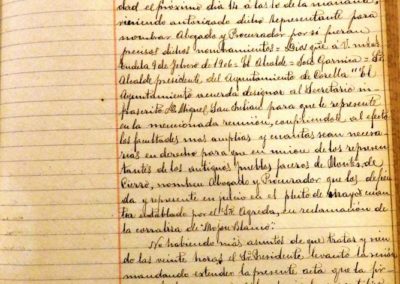 dad el próximo dia 14 á las 10 de la mañana,
viniendo autorizado dicho representante para
nombrar Abogado y Procurador por si fueran
precisos dichos nombramientos = Dios que á V. muchos
9 de Febrero de 1906 = El Alcalde = José Garnica = Sr.
Alcalde presidente del Ayuntamiento de Corella "El
Ayuntamiento acuerda designar al Secretario in-
frascrito Dn. Miguel San Julian para que le represente
en la mencionada reunión, cumpliendole al efecto
las facultades mas amplias y cuantas sean necesa-
rias en derecho para que en union de los represen-
tantes de los antiguos pueblos faceros de Montes de
Cierzo, nombren Abogado y Procurador que los defien-
da y represente en juicio en el pleito de mayor cuan-
tia entablado por el Sr. Agreda, en reclamación de
la corraliza de
No habiendo más asuntos de que tratar y sien-
do las veinte horas el Sr. Presidente levantó la sesión
mandando extender la presente acta que la fir-